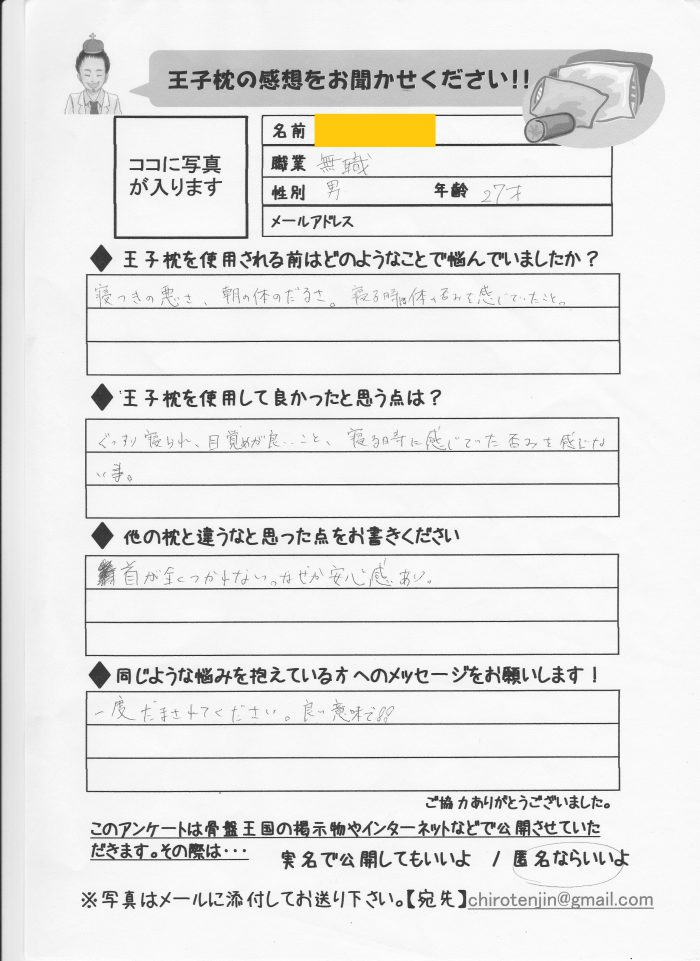 王子枕の感想をお聞かせください!!
ココに写真
が入ります
名前
職業 無職
性別 男 年齢 27才
メールアドレス
◆ 王子枕を使用される前はどのようなことで悩んでいましたか？
寝つきの悪さ、朝の体のだるさ。寝る時に体の歪みを感じていたこと。
◆ 王子枕を使用して良かったと思う点は？
ぐっすり寝られ、目覚めが良いこと、寝る時に感じていた歪みを感じな
い事。
◆ 他の枕と違うなと思った点をお書きください
首が全くつかれない。なぜか安心感あり。
◆ 同じような悩みを抱えている方へのメッセージをお願いします！
一度だまされてください。良い意味で!!
ご協力ありがとうございました。
このアンケートは骨盤王国の掲示物やインターネットなどで公開させていた
だきます。その際は・・・ 実名で公開してもいいよ / 匿名ならいいよ
※写真はメールに添付してお送り下さい。【宛先】chirotenjin@gmail.com